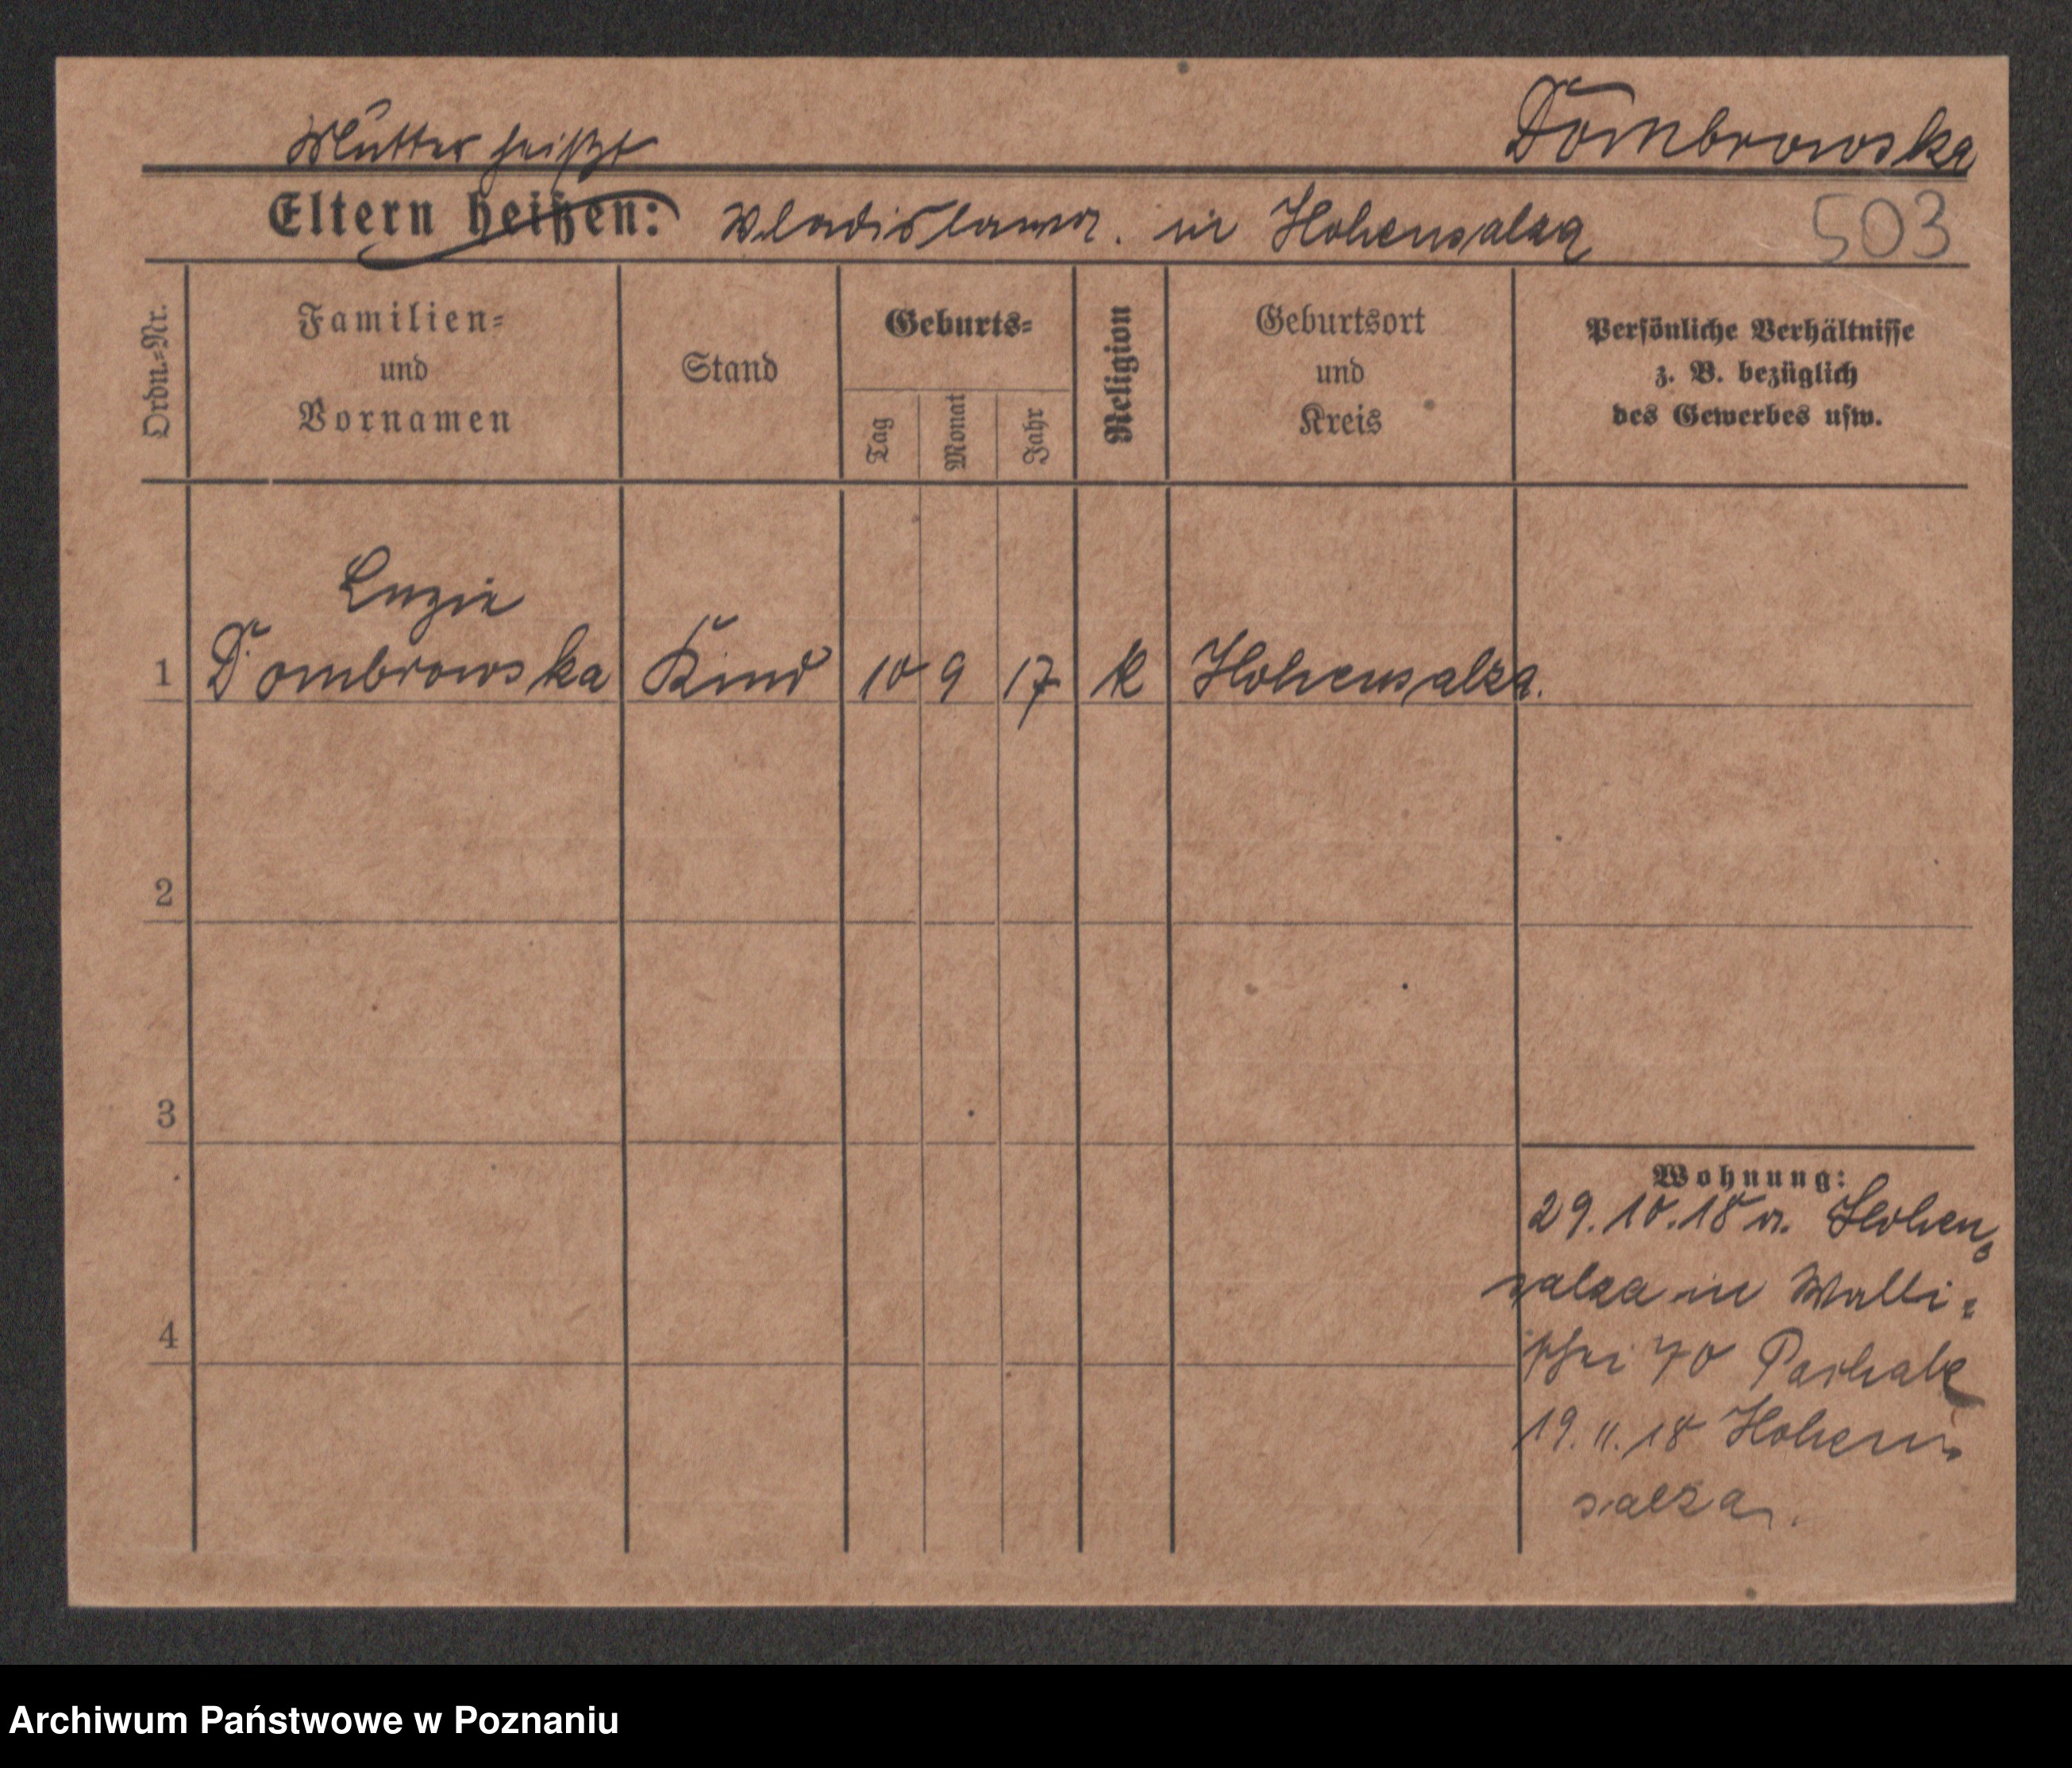 Mutter heißt
Dombrowska
Eltern heißen: Wladislawa. in Hohensalza
503
Ordn.=Nr.
Familien=
und
Vornamen
Stand
Geburts=
Tag
Monat
Jahr
Religion
Geburtsort
und
Kreis
Persönliche Verhältnisse
z. B. bezüglich
des Gewerbes usw.
Luzie
1 Dombrowska Kind 10 9 17 k Hohensalza.
2
3
4
Wohnung:
29.10.18 a. Hohen=
salza in Walli=
schei 70
19.11.18 Hohen=
salza.
Archiwum Państwowe w Poznaniu